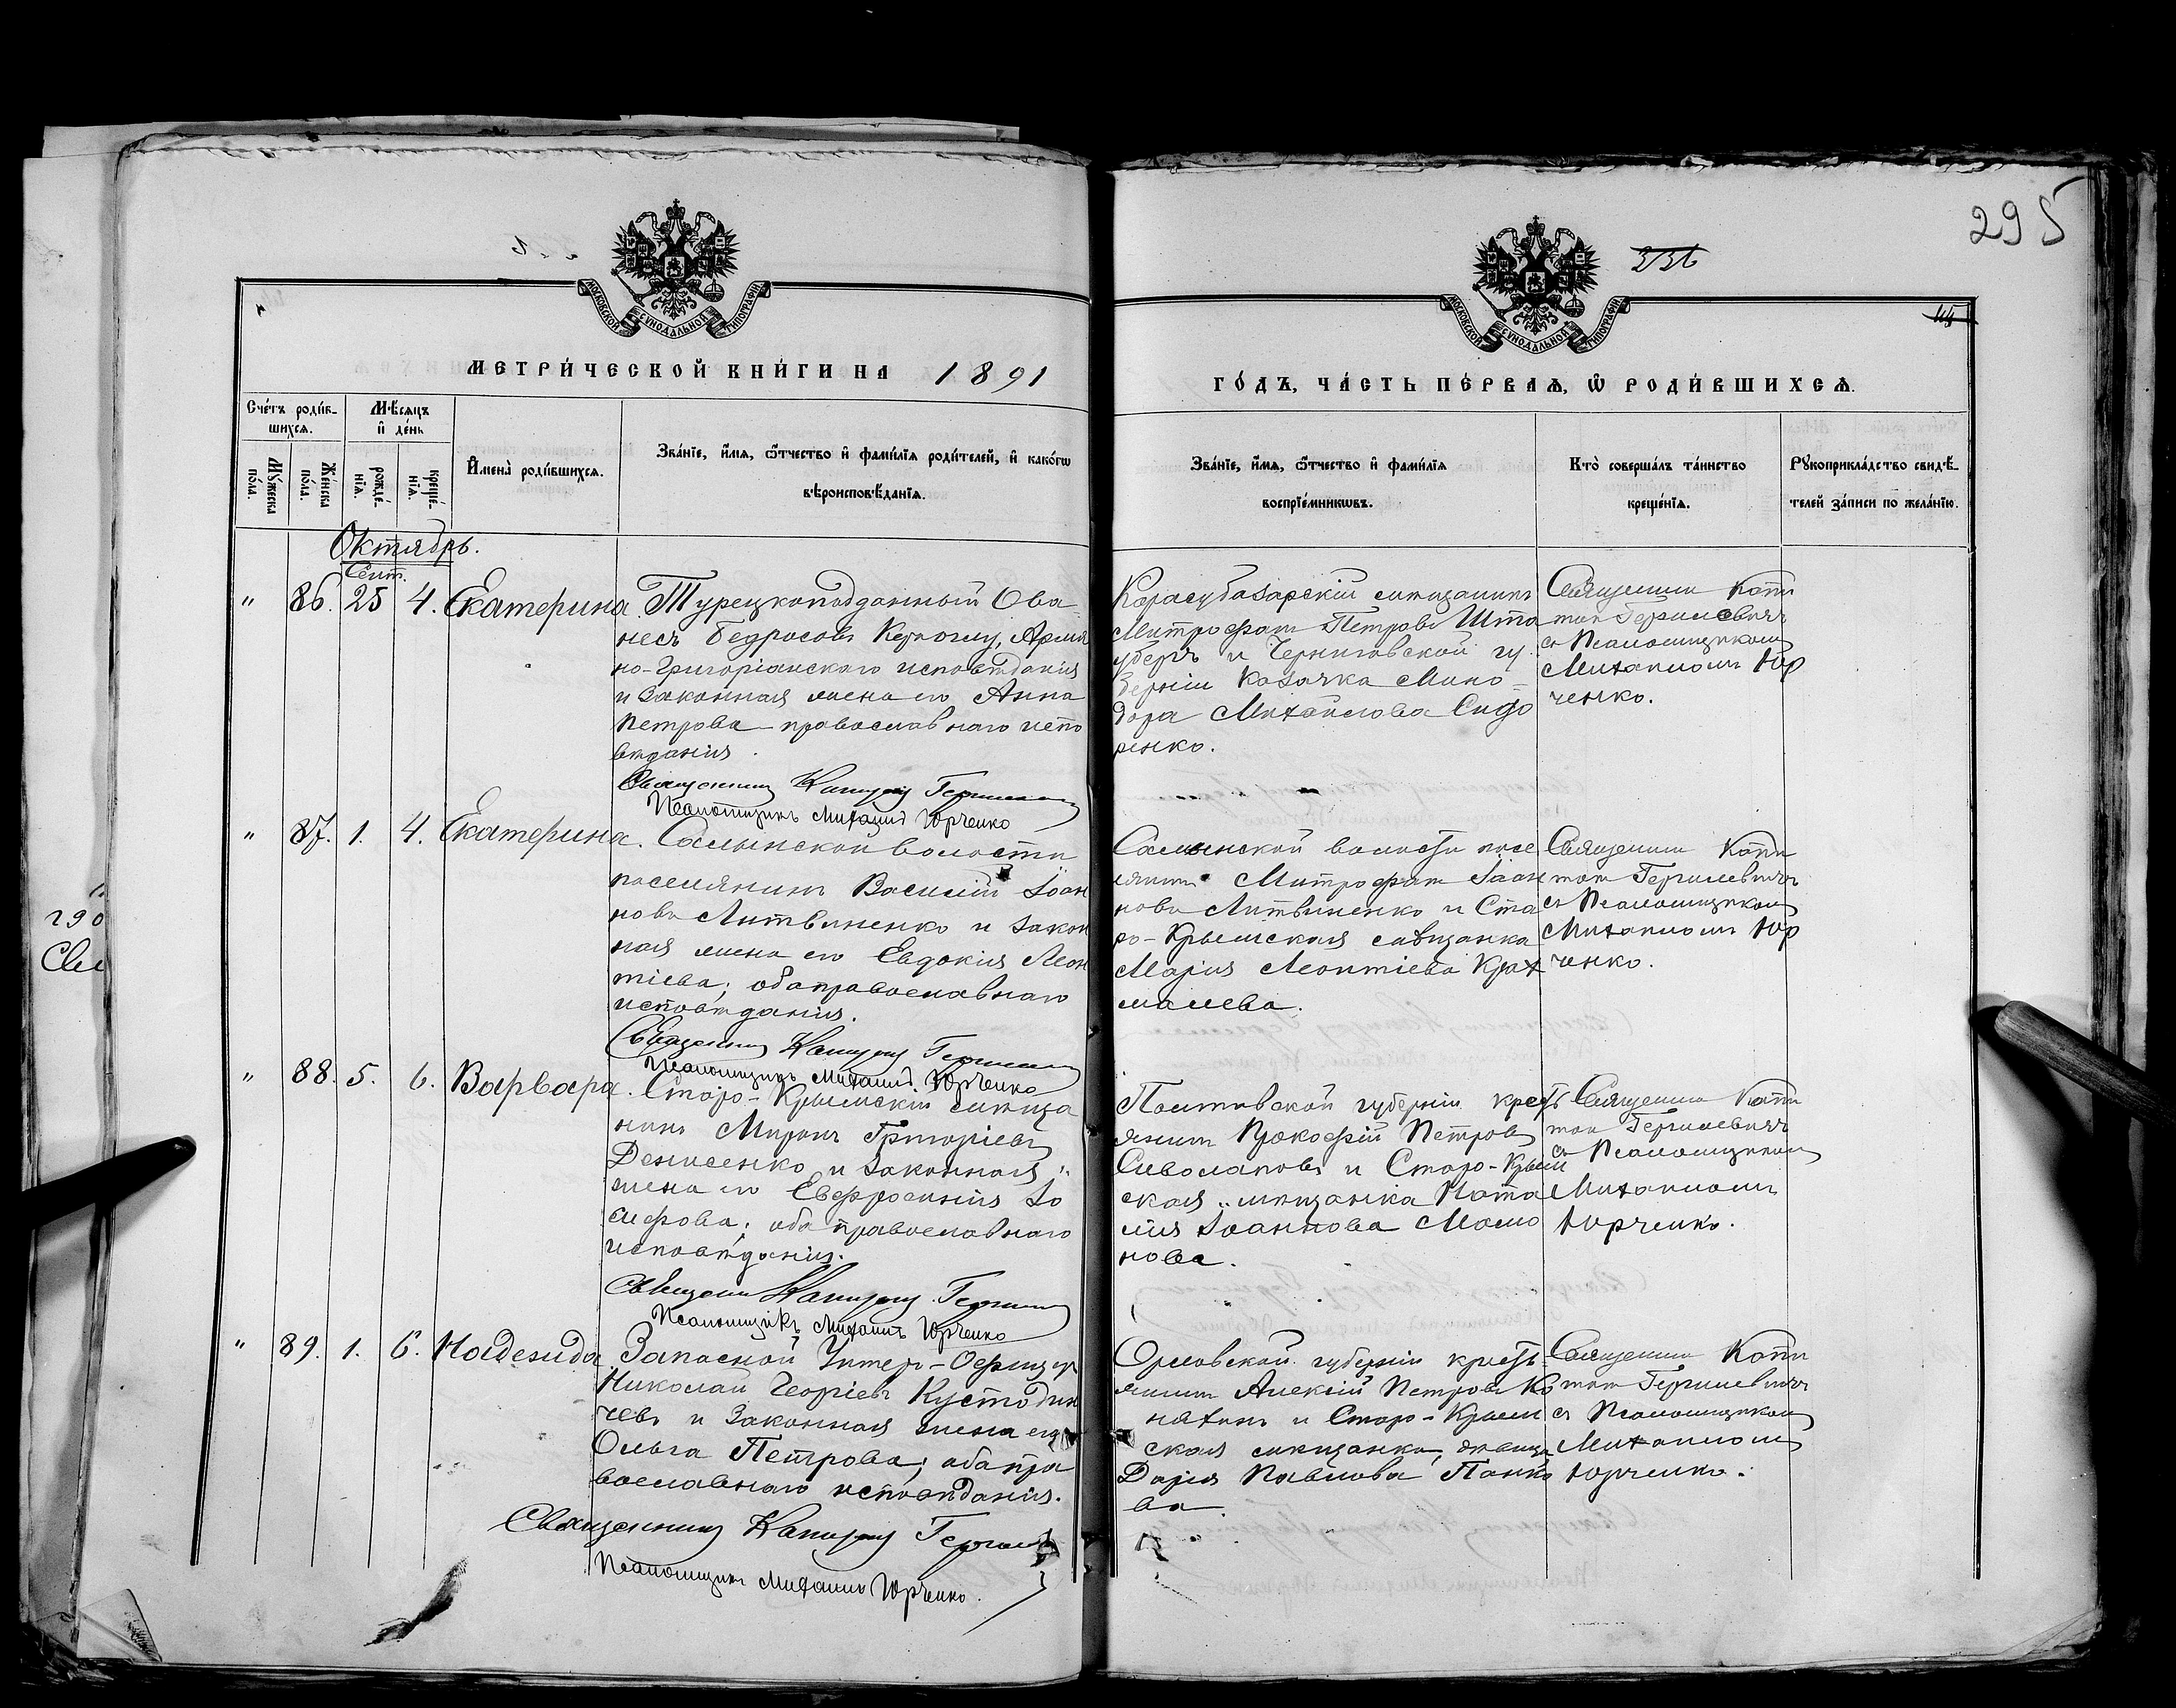 295
236
115
МОСКОВСКОЙ СѴНОДАЛЬНОЙ ТИПОГРАФІИ
МОСКОВСКОЙ СѴНОДАЛЬНОЙ ТИПОГРАФІИ
МЕТРИ́ЧЕСКОЙ КНИ́ГИ НА 1891
ГО́ДЪ, ЧА́СТЬ ПЕ́РВАѦ, Ѡ҆ РОДИ́ВШИХСѦ.
Сче́тъ роди́в-
шихсѧ.
Мꙋ́жеска
по́ла.
Же́нска
по́ла.
Мѣ́сѧцъ
и҆ де́нь
рожде́-
нїѧ.
креще́-
нїѧ.
И҆мена̀ роди́вшихсѧ.
Зва́нїе, и҆́мѧ, ѻ҆́тчество и҆ фами́лїѧ роди́телей, и҆ како́гѡ
вѣроисповѣ́данїѧ.
Зва́нїе, и҆́мѧ, ѻ҆́тчество и҆ фами́лїѧ
воспрїе́мникѡвъ.
Кто̀ соверша́лъ та́инство
креще́нїѧ.
Рꙋкоприкла́дство свидѣ́-
телей за́писи по жела́нїю.
Октябрь.
Сент.
" 86. 25 4. Екатерина.
Турецкоподданный Ова
несъ Бедросовъ , Армя
но-Григоріанскаго исповѣданія
и законная жена его Анна
Петрова православнаго испо
вѣданія.
Священникъ Капитонъ
Псаломщикъ Михаилъ Юрченко
Карасубазарскій мѣщанинъ
Митрофанъ Петровъ Шта
и Черниговской гу
берніи казачка Мино
дора Михайлова Сидо
ренко.
Священникъ Капи
тонъ Гергилевичъ
съ Псаломщикомъ
Михаиломъ Юр
ченко.
" 87. 1. 4. Екатерина.
Салынской волости
поселянинъ Василій Іоан
новъ Литвиненко и закон
ная жена его Евдокія Леон
тіева; оба православнаго
исповѣданія.
Священникъ Капитонъ
Псаломщикъ Михаилъ Юрченко
Салынской волости посе
лянинъ Митрофанъ Іоан
новъ Литвиненко и Ста
ро-Крымская мѣщанка
Марія Леонтіева Крах
малева.
Священникъ Капи
тонъ Гергилевичъ
съ Псаломщикомъ
Михаиломъ Юр
ченко.
" 88. 5. 6. Варвара.
Старо-Крымскій мѣща
нинъ Миронъ Григоріевъ
Денисенко и законная
жена его Евфросинія Іо
сифова; оба православнаго
исповѣданія.
Священникъ Капитонъ
Псаломщикъ Михаилъ Юрченко
Полтавской губерніи кресть
янинъ Прокофій Петровъ
Сиволаповъ и Старо-Крым
ская мѣщанка Ната
лія Іоаннова Мамо
нова.
Священникъ Капи
тонъ Гергилевичъ
съ Псаломщикомъ
Михаиломъ
Юрченко.
" 89. 1. 6. Надежда
Запасной Унтеръ-Офицеръ
Николай Георгіевъ Кустодин
чевъ и законная жена его
Ольга Петрова; оба пра
вославнаго исповѣданія.
Священникъ Капитонъ
Псаломщикъ Михаилъ Юрченко.
Орловской губерніи кресть-
янинъ Алексій Петровъ Ко
няхинъ и Старо-Крым
ская мѣщанка, дѣвица
Дарія Павлова Панко
ва.
Священникъ Капи
тонъ Гергилевичъ
съ Псаломщикомъ
Михаиломъ
Юрченко.
290